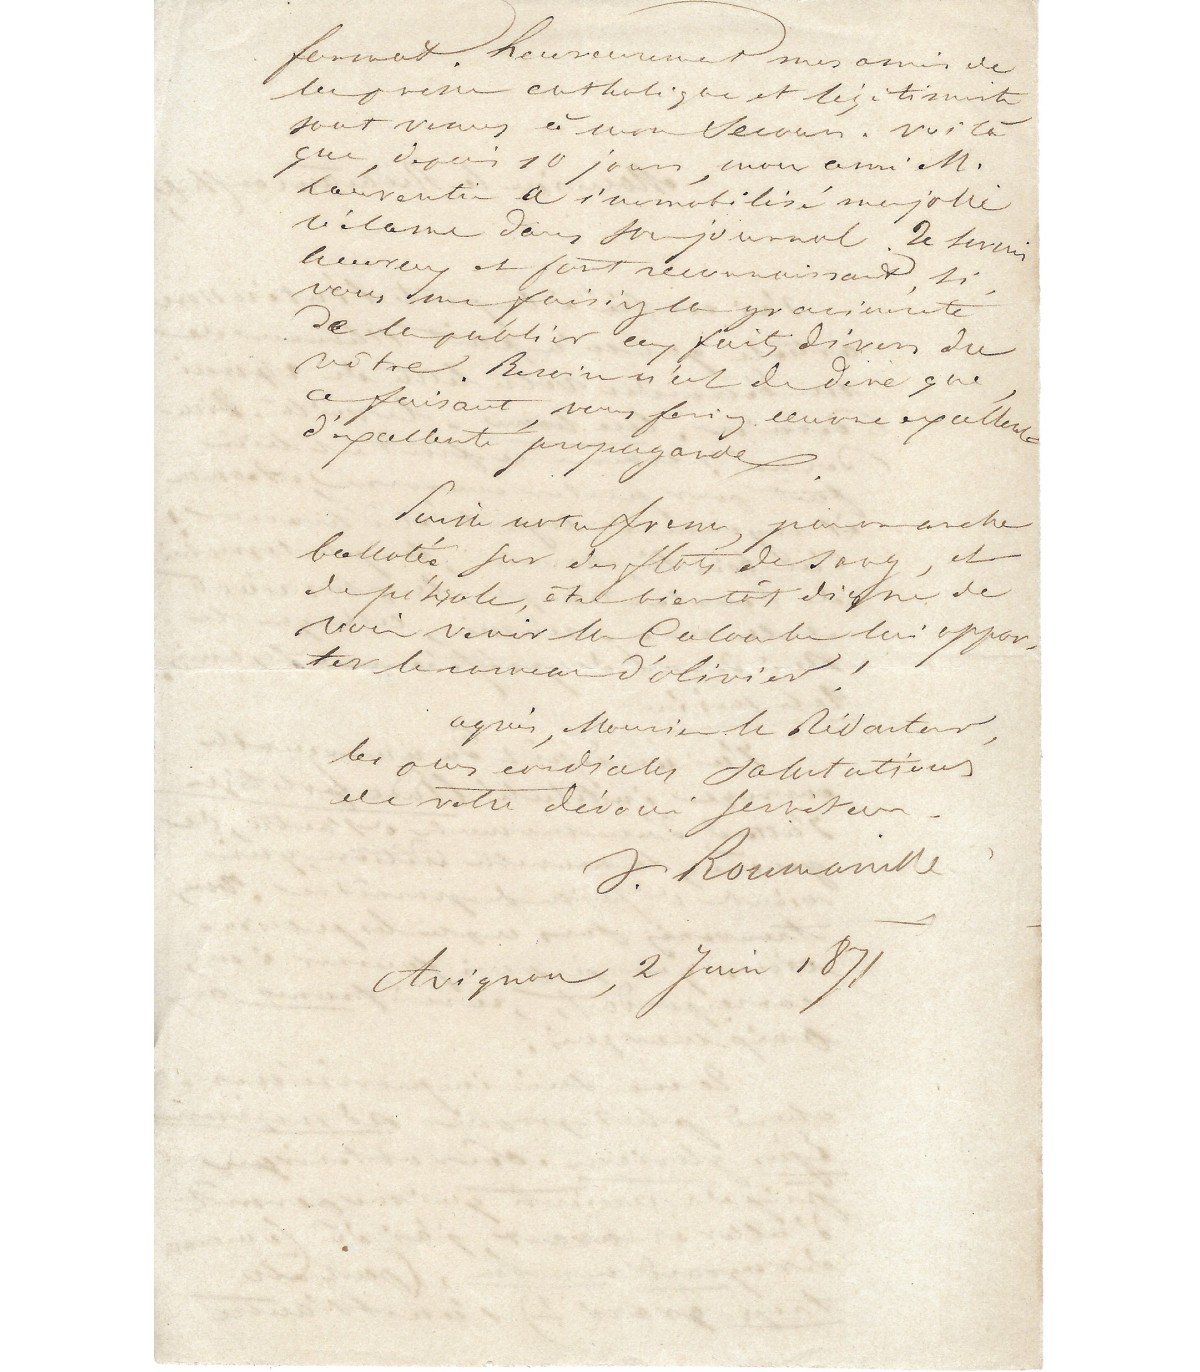 format. heureusement mes amis de
la presse catholique et légitimiste
sont venus à mon secours. voilà
que, depuis 10 jours, mon ami M.
Laurentie a immobilisé ma jolie
réclame dans son journal. Je serais
heureux et fort reconnaissant, si,
vous me faisiez la gracieuseté
de la publier en faits divers du
vôtre. Besoin n'est de dire que,
ce faisant, vous feriez œuvre excellente
d'excellente propagande.
Puisse notre france, pauvre arche
ballotée sur des flots de sang, et
de pétrole, être bientôt digne de
voir venir la Colombe lui appor-
ter le rameau d'olivier !
agréez, Monsieur le Rédacteur,
les plus cordiales salutations
de votre dévoué serviteur.
J. Roumanille
Avignon, 2 Juin 1871